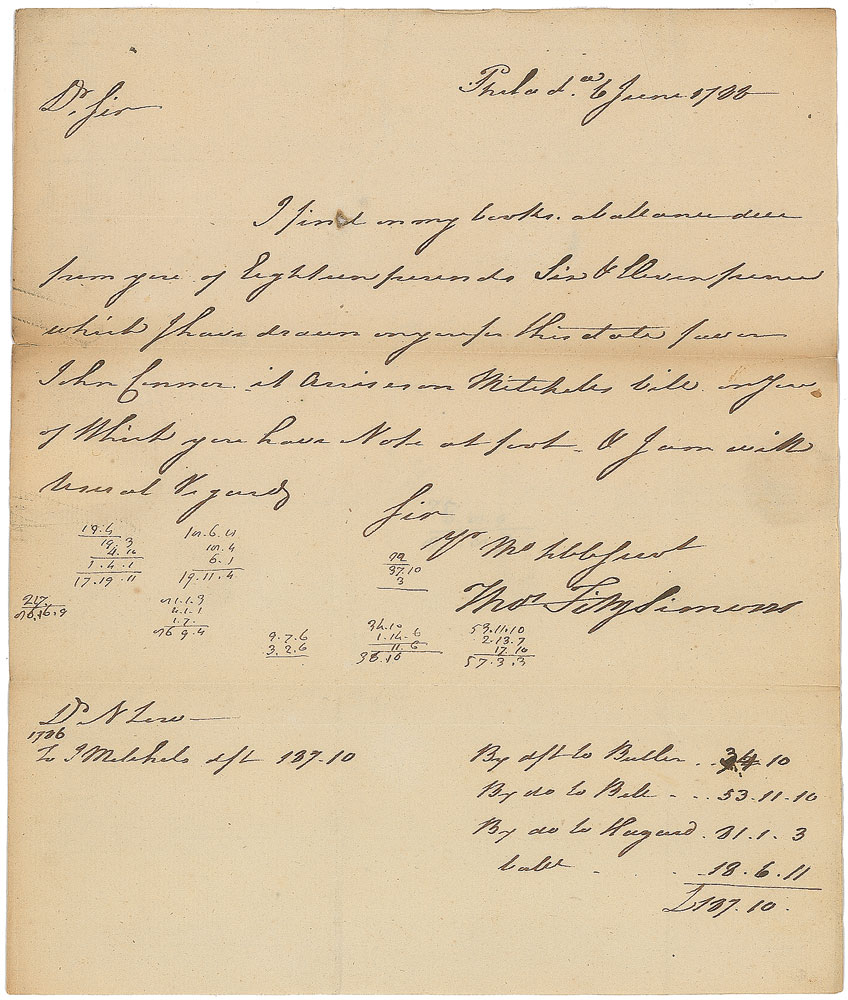 Philad.ª 6 June 1788
Dr. Sir
I find on my books. a ballance due
from you of Eighteen pounds Six & Eleven pence
which I have drawn on you for this date favor
John Connor. it Arrises on Mitchels bill on You
of Which you have Note at foot. & I am with
Usual Regards
Sir
Yr Mo hble Servt
Thos FitzSimons
19.4
19.3
4.10
1.4.1
17.19.11
101.4
6.1
19.11.4
37.10
3
217
1.7.
9.7.6
3.2.6
34.10
1.14.6
11.6
36.16
53.11.10
2.13.7
17.10
57.3.3
Dr. N Low
1786
To J Mitchels dft 137.10
By dft to Butler . . 34 10
By do to Bell . . . 53.11.10
By do to Hazard . 31.1.3
balle . . . 18.6.11
£137.10.